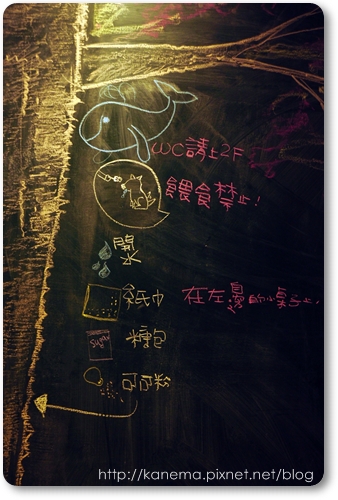 WC請上2F
餵食禁止!
開水
紙巾 在左邊的小桌子上.
糖包
可可粉
http://kanema.pixnet.net/blog